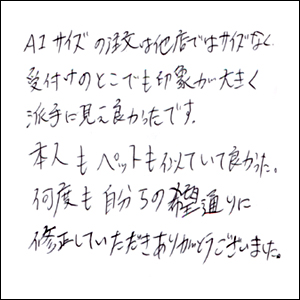 A1サイズの注文は他店ではサイズなく
受付けのとこでも印象が大きく
派手に見え良かったです。
本人もペットも似ていて良かった。
何度も自分ちの希望通りに
修正していただきありがとうございました。